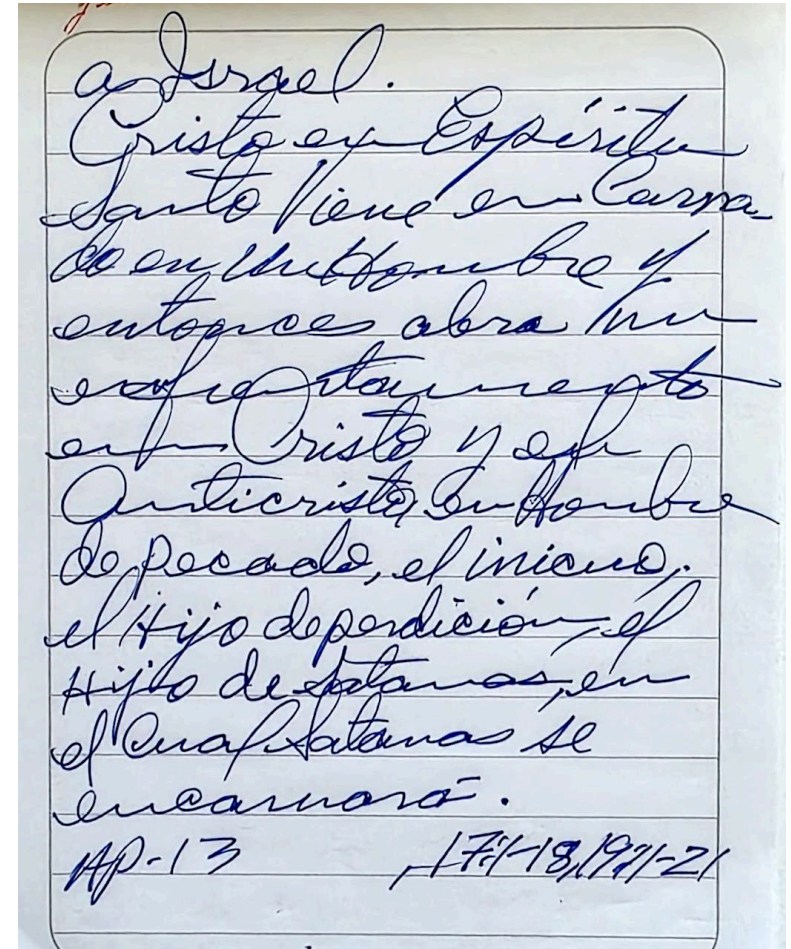 a Israel.
Cristo en Espíritu
Santo Viene en Carna
do en un Hombre y
entonces abra un
enfrentamiento
en Cristo y el
Anticristo, en Hombre
de pecado, el inicuo,
el Hijo de perdición, el
Hijo de Satanas, en
el Cual Satanas se
encarnará.
AP-13 ,17:1-18,19:1-21